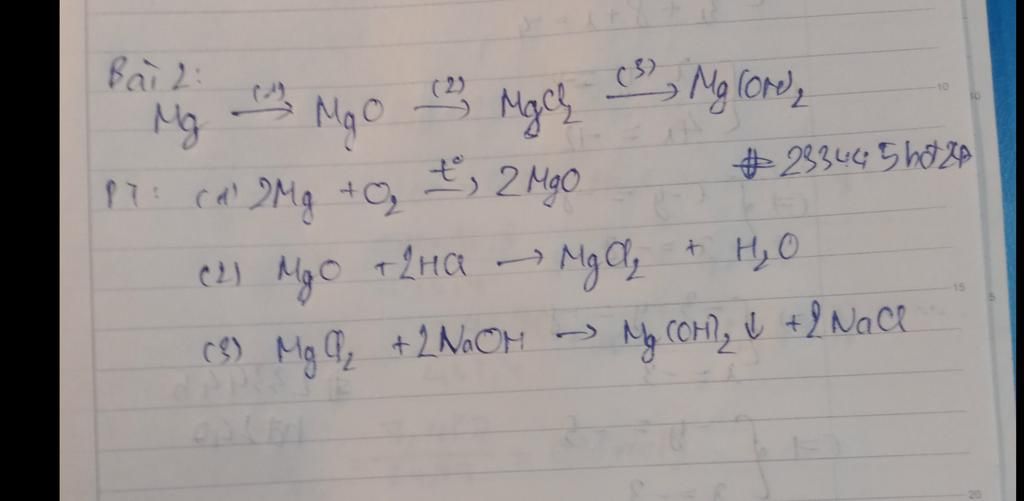 Bài 2:
Mg (1)→ MgO (2)→ MgCl2 (3)→ Mg(OH)2
PT: (1) 2Mg + O2 t°→ 2MgO
(2) MgO + 2HCl → MgCl2 + H2O
(3) MgCl2 + 2NaOH → Mg(OH)2 ↓ + 2NaCl
10
15
20